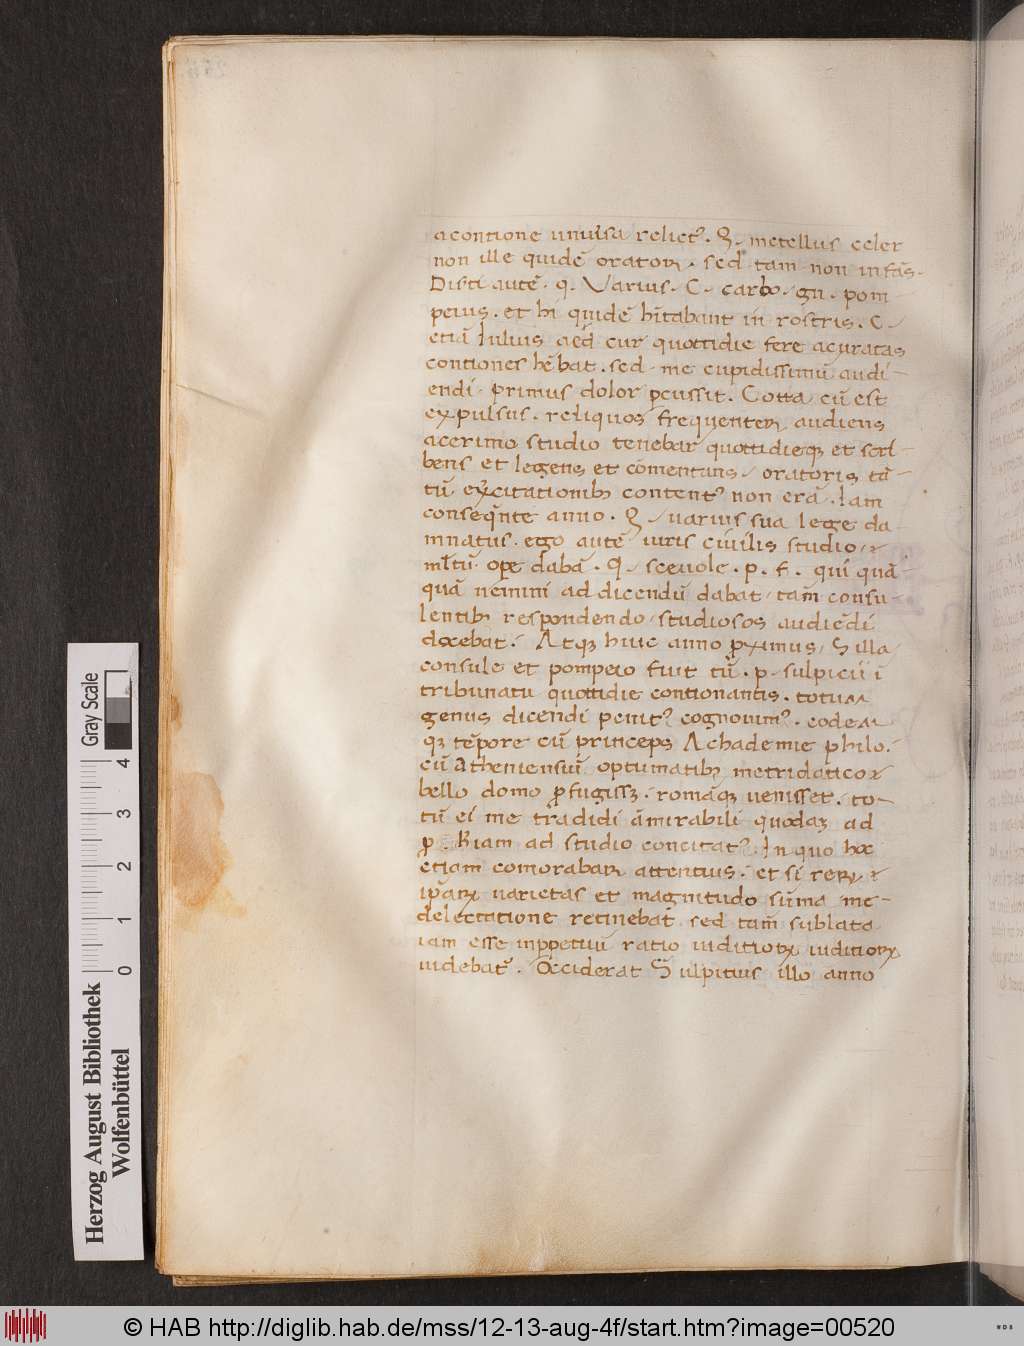 a contione unulsa relict⁹. Q. metellus celer
non ille quidē orator. sed tam non infās.
Diserti autē. q. Varius. C. carbo. gn. pom
peius. et hi quidē hītabant in rostris. C.
etiā Iulius aed cur quottidie fere acuratas
contiones hēbat. sed me cupidissimū audi
endi primus dolor ꝑcussit. Cotta cū est
expulsus. reliquos frequenter audiens
acerimo studio tenebar quottidieqꝫ et scri
bens et legens et cōmentans. oratoris tā
tū exercitationibꝫ content⁹ non erā. Iam
conseqn̄te anno. Q. varius sua lege da
mnatus. ego autē iuris civilis studio.
ml̄tū opе dabā. Q. scevole. p. f. qui quā
quā nemini ad dicendū dabat. tam̄ consu
lentibꝫ respondendo studiosos audiēdi
docebat. Atqꝫ huic anno ꝓximus Silla
consule et pompeio fuit tū. p. sulpicii ī
tribunatu quottidie contionantis. totum
genus dicendi penit⁹ cognovim⁹. eodem
qꝫ tēpore cū princeps Achademie philo.
cū Atheniensiū optumatibꝫ metridatico
bello domo ꝓfugissꝫ. romāqꝫ venisset. to
tū ei me tradidi āmirabili quodaꝫ ad
ꝓ. Riam ad studio concitat⁹. In quo hoc
etiam comorabar attentius. et si rerꝝ
ip̄arꝝ varietas et magnitudo sūma me
delectatione retinebat sed tam̄ sublata
iam esse inꝑpetuū ratio iuditiorꝝ iuditiorꝝ
videbat᷑. Occiderat Sulpitius illo anno
Gray Scale
0 1 2 3 4
Herzog August Bibliothek
Wolfenbüttel
© HAB http://diglib.hab.de/mss/12-13-aug-4f/start.htm?image=00520